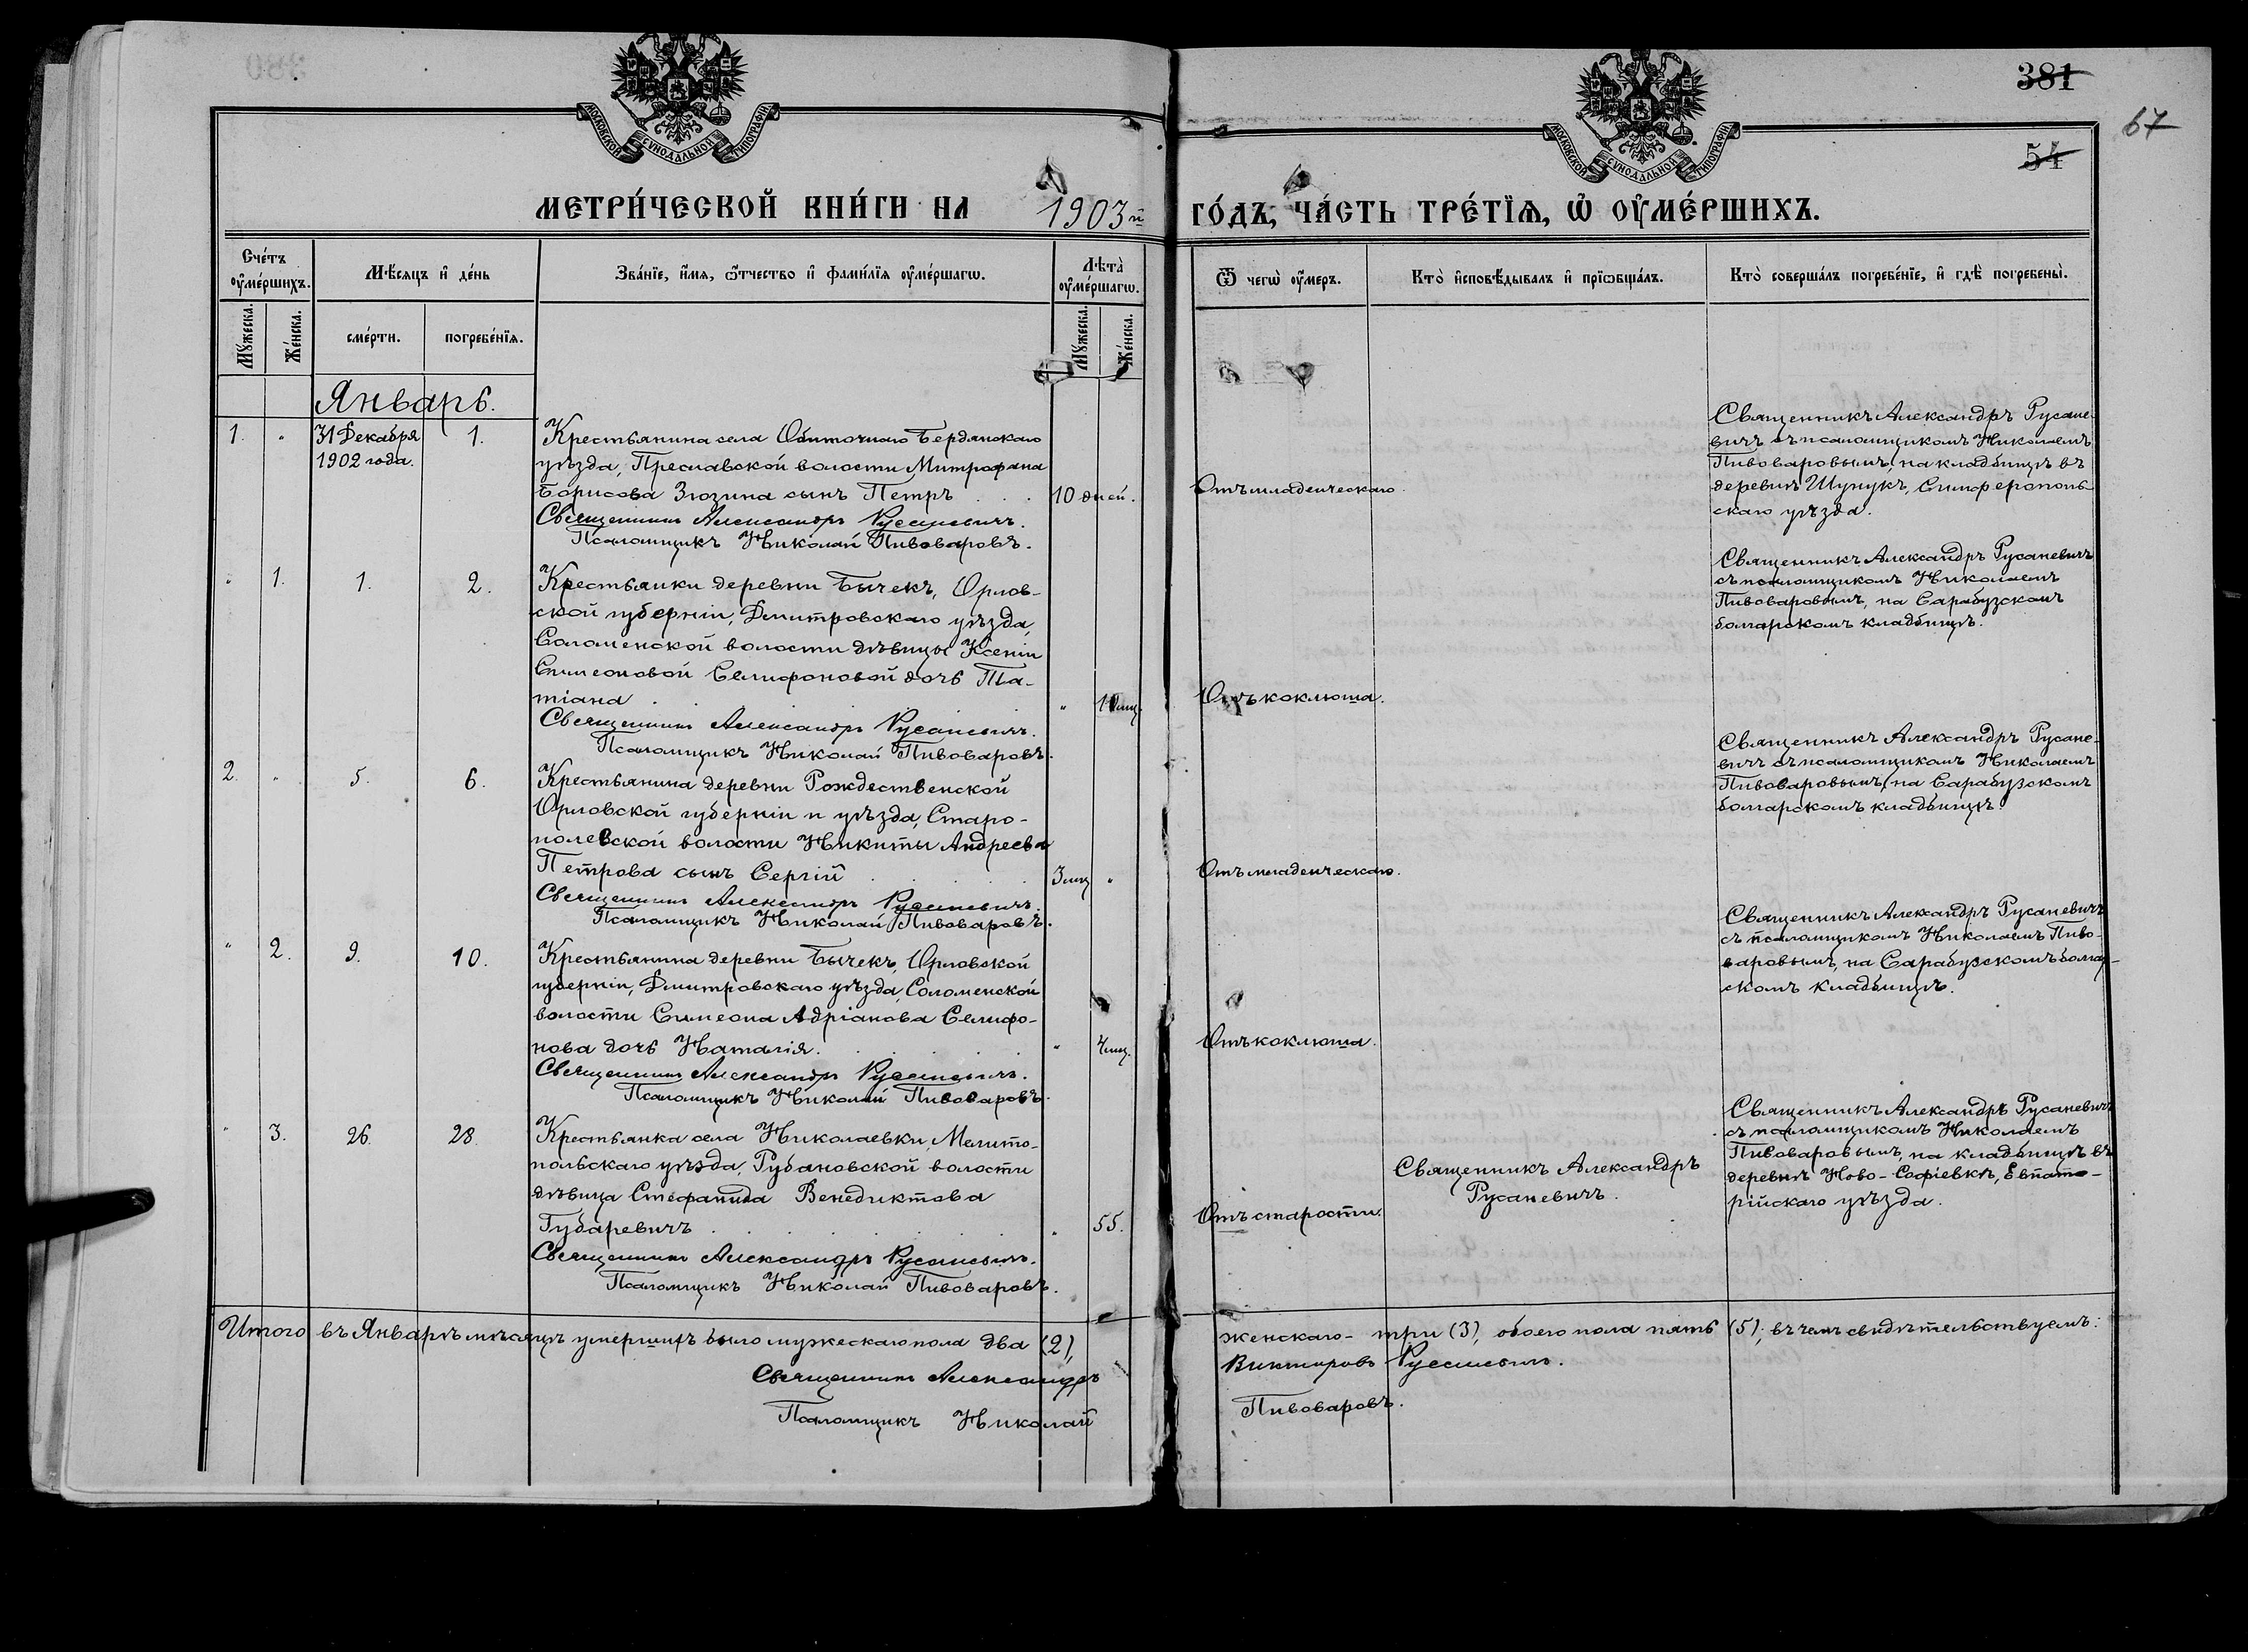 381
67
54
МОСКОВСКОЙ СѴНОДАЛЬНОЙ ТИПОГРАФІИ
МОСКОВСКОЙ СѴНОДАЛЬНОЙ ТИПОГРАФІИ
МЕТРИ́ЧЕСКОЙ КНИ́ГИ НА 1903й ГО́ДЪ, ЧА́СТЬ ТРЕ́ТЇѦ, Ѡ҆ ОУ҆МЕ́РШИХЪ.
Сче́тъ оу҆ме́ршихъ.
Мѣ́сяцъ и҆ де́нь
Зва́нїе, и҆́мя, ѻ҆́тчество и҆ фами́лїя оу҆ме́ршагѡ.
Лѣта̀ оу҆ме́ршагѡ.
Ѿ чегѡ̀ оу҆́меръ.
Кто̀ и҆сповѣ́дывалъ и҆ прїѡбща́лъ.
Кто̀ соверша́лъ погребе́нїе, и҆ гдѣ̀ погребены̀.
Мꙋ́жеска.
Же́нска.
сме́рти.
погребе́нїя.
Мꙋ́жеска.
Же́нска.
Январь.
1. " 31 Декабря 1.
1902 года.
Крестьянина села Обиточнаго Бердянскаго
уѣзда, Преславской волости Митрофана
Борисова Зюзина сынъ Петръ . . . 10 дней.
Священникъ Александръ Русаневичъ.
Псаломщикъ Николай Пивоваровъ.
Отъ младенческаго.
Священникъ Александръ Русане-
вичъ съ псаломщикомъ Николаемъ
Пивоваровымъ, на кладбищѣ въ
деревнѣ Шунукъ, Симферополь-
скаго уѣзда.
" 1. 1. 2.
Крестьянки деревни Бычекъ, Орлов-
ской губерніи, Дмитровскаго уѣзда,
Соломенской волости дѣвицы Ксеніи
Симеоновой Селифоновой дочь Та-
тіана . " 10 мц.
Священникъ Александръ Русаневичъ.
Псаломщикъ Николай Пивоваровъ.
Отъ коклюша.
Священникъ Александръ Русаневичъ
съ псаломщикомъ Николаемъ
Пивоваровымъ, на Сарабузскомъ
болгарскомъ кладбищѣ.
2. " 5. 6.
Крестьянина деревни Рождественской
Орловской губерніи и уѣзда, Старо-
полевской волости Никиты Андреева
Петрова сынъ Сергій . . . . 3 мц "
Священникъ Александръ Русаневичъ.
Псаломщикъ Николай Пивоваровъ.
Отъ младенческаго.
Священникъ Александръ Русане-
вичъ съ псаломщикомъ Николаемъ
Пивоваровымъ, на Сарабузскомъ
болгарскомъ кладбищѣ.
" 2. 9. 10.
Крестьянина деревни Бычекъ, Орловской
губерніи, Дмитровскаго уѣзда, Соломенской
волости Симеона Адріанова Селифо-
нова дочь Наталія. . . . . . " 4 мц.
Священникъ Александръ Русаневичъ.
Псаломщикъ Николай Пивоваровъ.
Отъ коклюша.
Священникъ Александръ Русаневичъ
съ псаломщикомъ Николаемъ Пиво-
варовымъ, на Сарабузскомъ болгар-
скомъ кладбищѣ.
" 3. 26. 28.
Крестьянка села Николаевки, Мелито-
польскаго уѣзда, Рубановской волости
дѣвица Стефанида Венедиктова
Губаревичъ . . . . . . . " 55.
Священникъ Александръ Русаневичъ.
Псаломщикъ Николай Пивоваровъ.
Отъ старости.
Священникъ Александръ
Русаневичъ.
Священникъ Александръ Русаневичъ
съ псаломщикомъ Николаемъ
Пивоваровымъ, на кладбищѣ въ
деревнѣ Ново-Софіевкѣ, Евпато-
рійскаго уѣзда.
Итого въ Январѣ мѣсяцѣ умершихъ было мужескаго пола два (2), женскаго - три (3), обоего пола пять (5); въ чемъ свидѣтельствуемъ:
Священникъ Александръ Викторовъ Русаневичъ.
Псаломщикъ Николай Пивоваровъ.